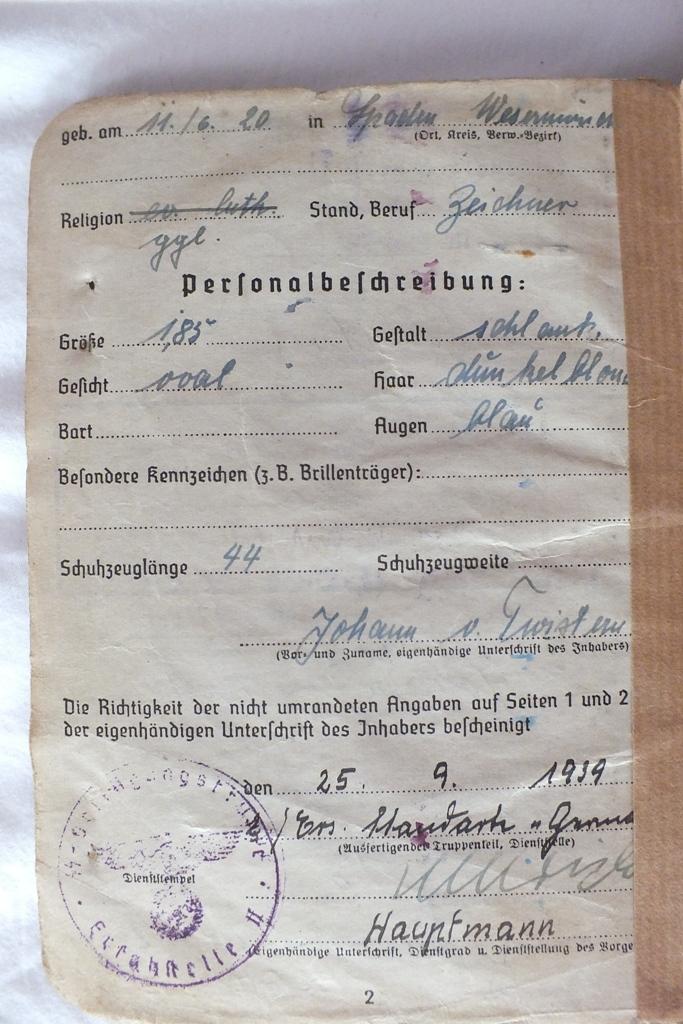 geb. am 11./6. 20 in Spaden
(Ort, Kreis, Verw.-Bezirk)
Religion ev. luth. Stand, Beruf Zeichner
ggl.
Personalbeschreibung:
Größe 1,85 Gestalt schlank.
Gesicht oval Haar dunkelblon
Bart Augen blau
Besondere Kennzeichen (z. B. Brillenträger):
Schuhzeuglänge 44 Schuhzeugweite
Johann v. Twistern
(Vor- und Zuname, eigenhändige Unterschrift des Inhabers)
Die Richtigkeit der nicht umrandeten Angaben auf Seiten 1 und 2
der eigenhändigen Unterschrift des Inhabers bescheinigt
den 25. 9. 1939
/Ers. Standarte „Germa
(Ausfertigender Truppenteil, Dienststelle)
Dienststempel
Hauptmann
(Eigenhändige Unterschrift, Dienstgrad u. Dienststellung des Vorge
SS-Verfügungstruppe
II
2